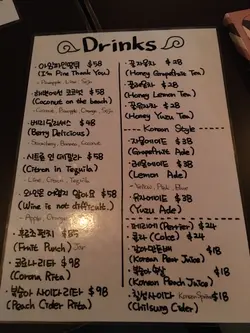 Drinks
아임파인땡큐 $58
(I'm Pine Thank You)
- Pineapple, Lime, Soju
해변에서 코코넛 $58
(Coconut on the beach)
- Coconut, Pineapple, Orange, Soju
베리딜리셔스 $58
(Berry Delicious)
- Strawberry, Banana, Coconut
시트론 인 데킬라 $58
(Citron in Tequila)
- Lime, Citron, Tequila
와인은 어렵지 않아요 $58
(Wine is not difficult)
- Apple, Orange
후르츠펀치
(Fruit Punch) Jar
코로나리타 $98
(Corona Rita)
복숭아 사이다리타 $98
(Peach Cider Rita)
꿀자몽차 $38
(Honey Grapefruit Tea)
꿀레몬차 $38
(Honey Lemon Tea)
꿀유자차 $38
(Honey Yuzu Tea)
Korean Style
자몽에이드 $38
(Grapefruit Ade)
레몬에이드 $38
(Lemon Ade)
- Yellow, Pink, Blue
유자에이드 $38
(Yuzu Ade)
페리에 (Perrier) $24
콜라 (Coke) $24
갈아만든배 $18
(Korean Pear Juice)
복숭아 $18
(Korean Peach Juice)
칠성사이다 Korean Sprite $18
(Chilsung Cider)